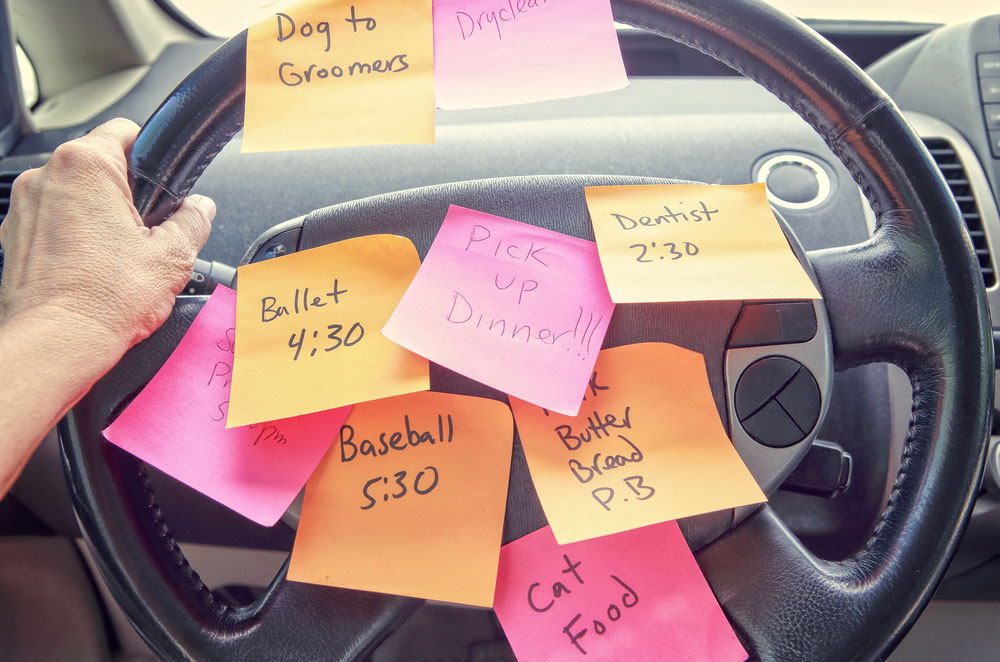 Dog to
Groomers
Dentist
2:30
Pick
up
Dinner!!!
Ballet
4:30
pm
Baseball
5:30
Butter
Bread
P.B
Cat
Food